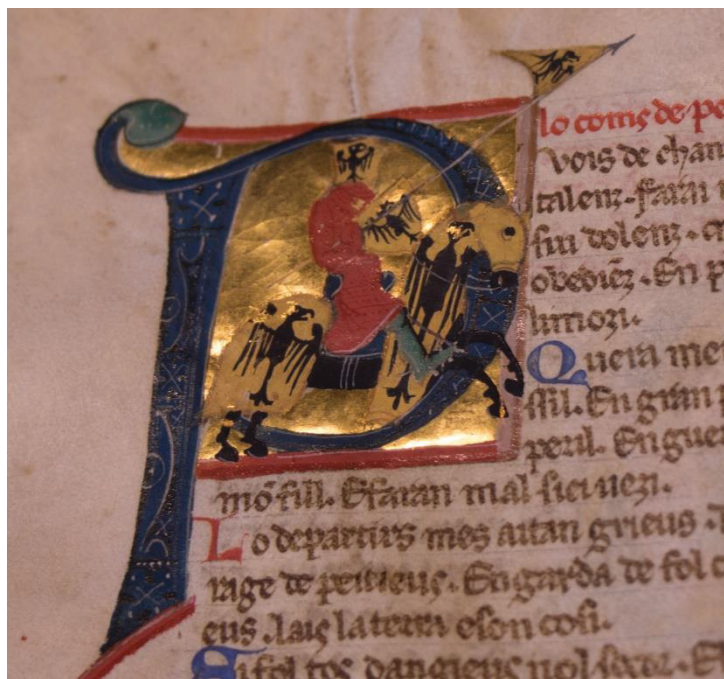 P
lo coms de pe
vois de chan
talenz. farai
fin dolenz. e
obediēz. En p
limozi.
Quera me
fill. En gran
peril. En gue
mō fill. E faran mal siei uezi.
Lo departirs mes aitan grieus.
rage de peitieus. En garda de fol c
eus. lais la terra e son cosi.
Si fol cos dangieus nol socor. E